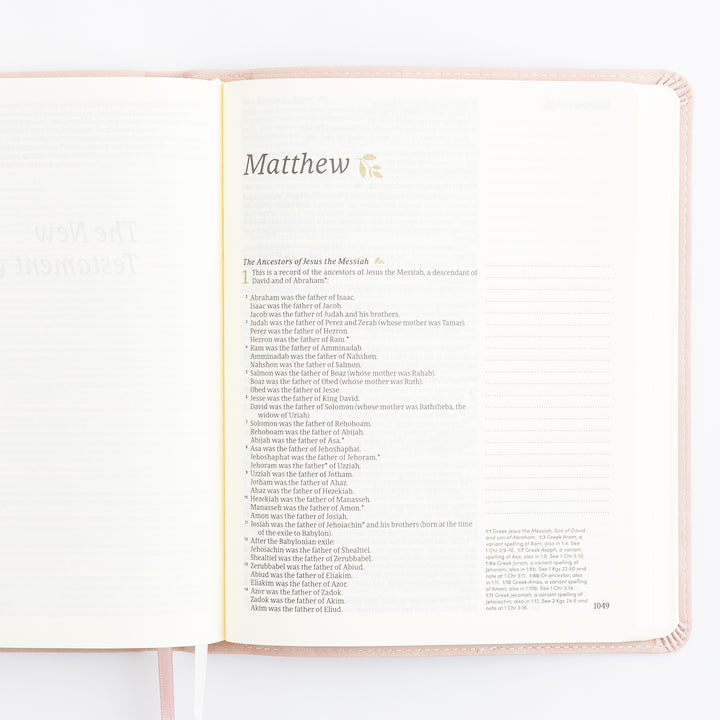 The New
Testament
Matthew
The Ancestors of Jesus the Messiah
1 This is a record of the ancestors of Jesus the Messiah, a descendant of
David and of Abraham*:
2 Abraham was the father of Isaac.
Isaac was the father of Jacob.
Jacob was the father of Judah and his brothers.
3 Judah was the father of Perez and Zerah (whose mother was Tamar).
Perez was the father of Hezron.
Hezron was the father of Ram.*
4 Ram was the father of Amminadab.
Amminadab was the father of Nahshon.
Nahshon was the father of Salmon.
5 Salmon was the father of Boaz (whose mother was Rahab).
Boaz was the father of Obed (whose mother was Ruth).
Obed was the father of Jesse.
6 Jesse was the father of King David.
David was the father of Solomon (whose mother was Bathsheba, the
widow of Uriah).
7 Solomon was the father of Rehoboam.
Rehoboam was the father of Abijah.
Abijah was the father of Asa.*
8 Asa was the father of Jehoshaphat.
Jehoshaphat was the father of Jehoram.*
Jehoram was the father* of Uzziah.
9 Uzziah was the father of Jotham.
Jotham was the father of Ahaz.
Ahaz was the father of Hezekiah.
10 Hezekiah was the father of Manasseh.
Manasseh was the father of Amon.*
Amon was the father of Josiah.
11 Josiah was the father of Jehoiachin* and his brothers (born at the time
of the exile to Babylon).
12 After the Babylonian exile:
Jehoiachin was the father of Shealtiel.
Shealtiel was the father of Zerubbabel.
13 Zerubbabel was the father of Abiud.
Abiud was the father of Eliakim.
Eliakim was the father of Azor.
14 Azor was the father of Zadok.
Zadok was the father of Akim.
Akim was the father of Eliud.
1:1 Greek Jesus the Messiah, Son of David
and son of Abraham. 1:3 Greek Aram, a
variant spelling of Ram; also in 1:4. See
1 Chr 2:9-10. 1:7 Greek Asaph, a variant
spelling of Asa; also in 1:8. See 1 Chr 3:10.
1:8a Greek Joram, a variant spelling of
Jehoram; also in 1:8b. See 1 Kgs 22:50 and
note at 1 Chr 3:11. 1:8b Or ancestor; also
in 1:11. 1:10 Greek Amos, a variant spelling
of Amon; also in 1:10b. See 1 Chr 3:14.
1:11 Greek Jeconiah, a variant spelling of
Jehoiachin; also in 1:12. See 2 Kgs 24:6 and
note at 1 Chr 3:16.
1049